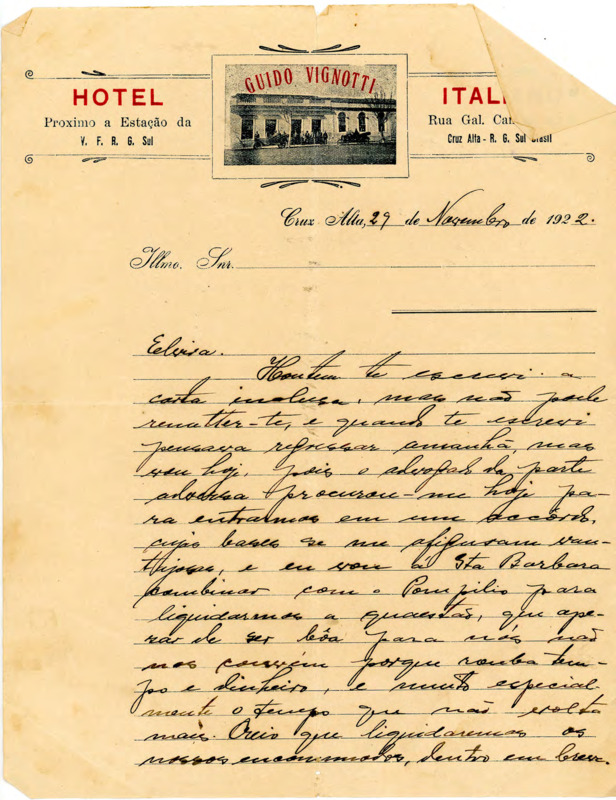 GUIDO VIGNOTTI
HOTEL
Proximo a Estação da
V. F. R. G. Sul
ITAL
Rua Gal. Ca
Cruz Alta - R. G. Sul Brasil
Cruz Alta, 29 de Novembro de 1922.
Illmo. Snr.
Elvira.
Hontem te escrevi a
carta inclusa, mas não pude
remetter-te, e quando te escrevi
pensava regressar amanhã, mas
vou hoje, pois o advogado da parte
adversa procurou-me hoje pa-
ra entrarmos em um accôrdo,
cujas bases se me afiguram van-
tajosas, e eu vou a Sta Barbara
combinar com o Pompilio para
liquidarmos a questão, que ape-
zar de ser bôa para nós não
nos convém porque rouba tem-
po e dinheiro, e muito especial-
mente o tempo que não volta
mais. Creio que liquidaremos os
nossos encommodos, dentro em breve.